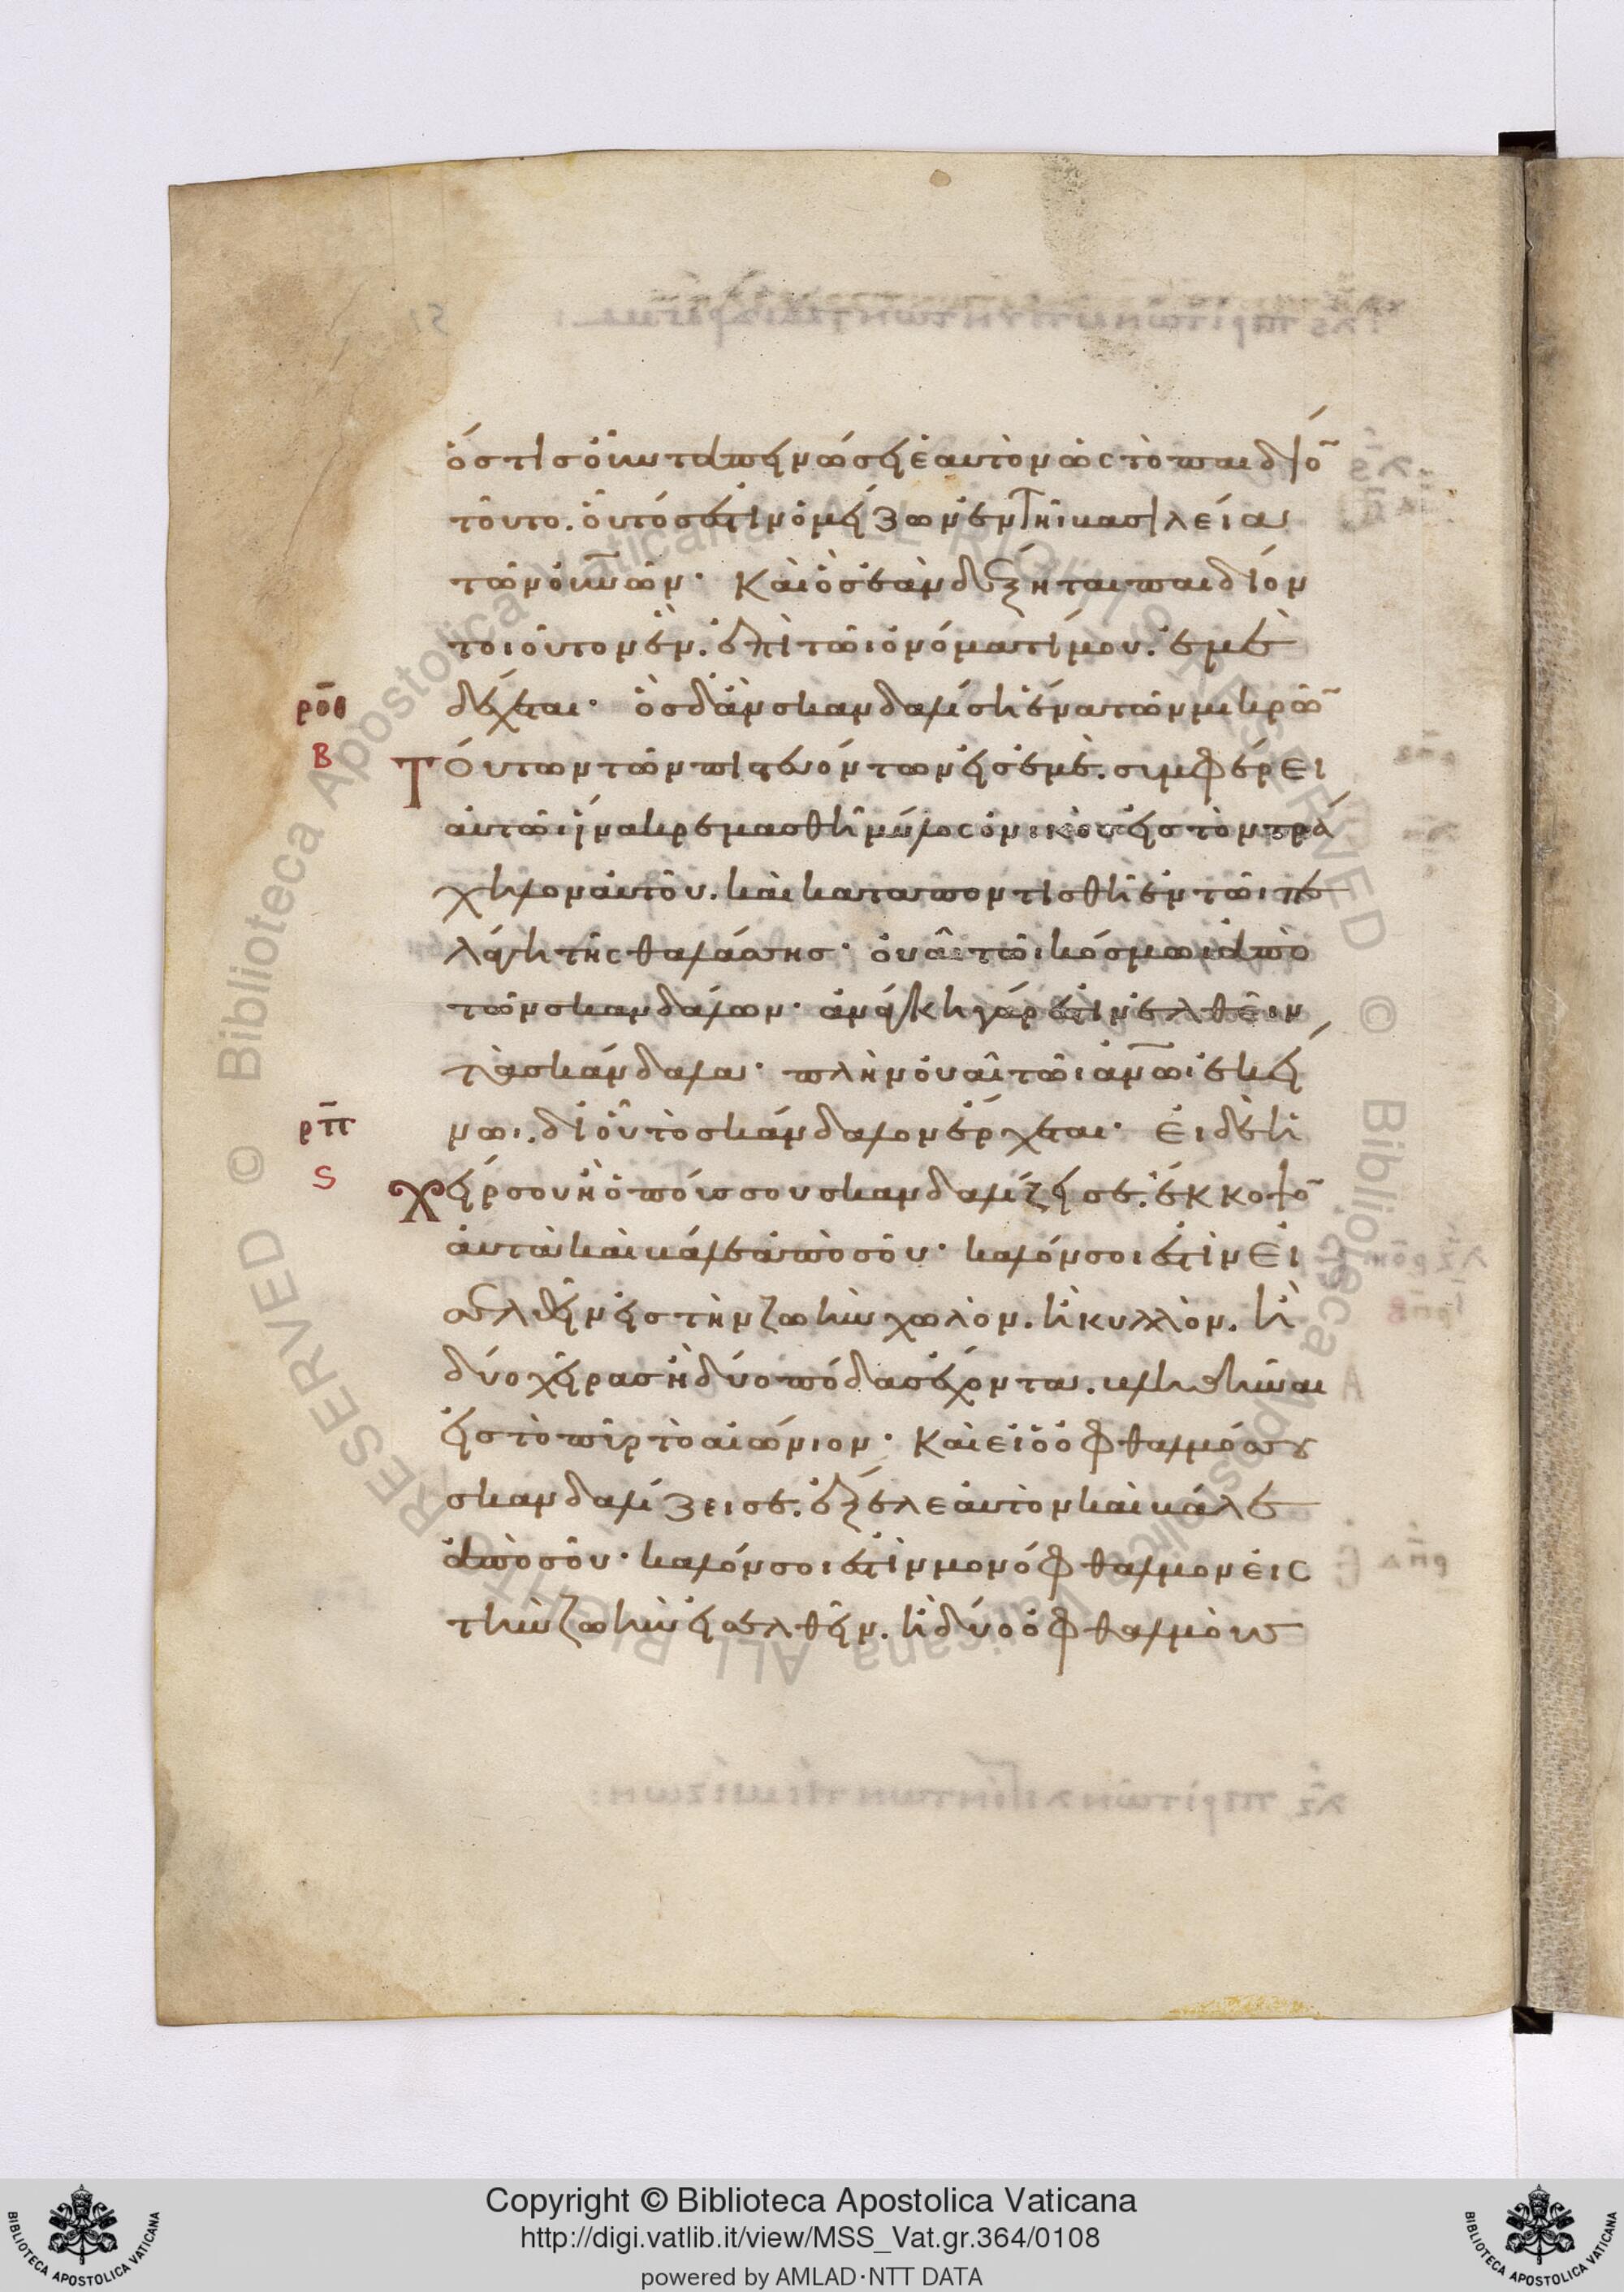 ὅστις οὖν ταπεινώσει ἑαυτὸν ὡς τὸ παιδίο̃
τοῦτο. οὗτός ἐστιν ὁ μείζων ἐν τῆι βασιλεία
τῶν οὐν̅ῶν· Καὶ ὃς ἐὰν δέξηται παιδίον
τοιοῦτον ἓν. ἐπὶ τῶι ὀνόματί μου. ἐμὲ
δέχεται· ὃς δ' ἂν σκανδαλίση ἕνα τῶν μικρῶ̃
ροθ
Β
Τούτων τῶν πιστευόντων εἰς ἐμὲ. συμφέρει
αὐτῶι ἵνα κρεμασθῆ μύλος ὀνικὸς εἰς τὸν τρά
χηλον αὐτοῦ. καὶ καταποντισθῆ ἐν τῶι πε
λάγει τῆς θαλάσσης· οὐαὶ τῶι κόσμωι ἀπὸ
τῶν σκανδάλων· ἀνάγκη γάρ ἐστιν ἐλθεῖν
τὰ σκάνδαλα· πλὴν οὐαὶ τῶι ἀν̅ωι ἐκεί
ρπ
ς
νωι. δι' οὗ τὸ σκάνδαλον ἔρχεται· Εἰ δὲ ἡ
χείρ σου ἢ ὁ πούς σου σκανδαλίζει σε. ἔκκοψο̃
αὐτὰ καὶ βάλε ἀπὸ σοῦ· καλόν σοι ἐστὶν εἰ
σελθεῖν εἰς τὴν ζωὴν χωλὸν. ἢ κυλλὸν. ἢ
δύο χεῖρας ἢ δύο πόδας ἔχοντα. βληθῆναι
εἰς τὸ πῦρ τὸ αἰώνιον· Καὶ εἰ ὁ ὀφθαλμός σου
σκανδαλίζει σε. ἔξελε αὐτὸν καὶ βάλε
ἀπὸ σοῦ· καλόν σοι ἐστὶν μονόφθαλμον εἰς
τὴν ζωὴν εἰσελθεῖν. ἢ δύο ὀφθαλμοὺς
© Biblioteca Apostolica Vaticana ALL RIGHTS RESERVED
Copyright © Biblioteca Apostolica Vaticana
http://digi.vatlib.it/view/MSS_Vat.gr.364/0108
powered by AMLAD·NTT DATA
BIBLIOTECA APOSTOLICA VATICANA
BIBLIOTECA APOSTOLICA VATICANA